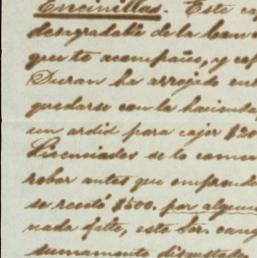 Encinillas. Este ca
desagradable de la ban
que te acompaño, y
Duran ha arrojado en
quedarse con la hacienda
un ardid para cojer $20
Licenciados de lo comun
robar antes que emprenda
se recetó $500. por algun
nada falte, este Sor. can
sumamente disgustado